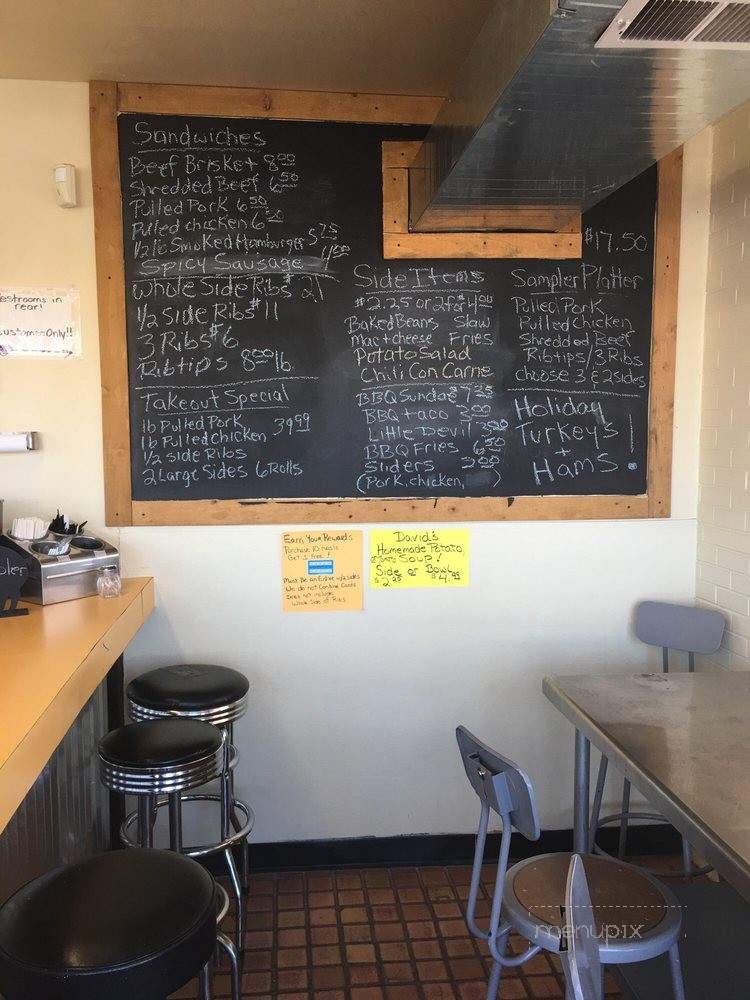 Sandwiches
Beef Brisket 8.00
Shredded Beef 6.50
Pulled Pork 6.50
Pulled chicken 6.50
1/2 lb Smoked Hamburger 5.25
Spicy Sausage 4.00
Whole Side Ribs $21
1/2 side Ribs $11
3 Ribs $6
Ribtips 8.00 lb
Takeout Special
1lb Pulled Pork
1lb Pulled chicken 39.99
1/2 side Ribs
2 Large Sides 6 Rolls
Side Items
$2.25 or 2 for $4.00
Baked Beans Slaw
Mac + cheese Fries
Potato Salad
Chili Con Carne
BBQ Sundae $7.25
BBQ taco 3.00
Little Devil 3.00
BBQ Fries 6.50
Sliders 3.00
(Pork, chicken, )
$17.50
Sampler Platter
Pulled Pork
Pulled Chicken
Shredded Beef
Ribtips/3 Ribs
choose 3 & 2 sides
Holiday
Turkeys
+
Hams!
estrooms in
rear!
ustomers Only!!
oler
Earn Your Rewards
Purchase 10 meals
Get 1 Free!
Must Be an Entree w/2 sides
We do not Combine Cards
Does not include
Whole Side of Ribs
David's
Homemade Potato
Soup!
Side or Bowl
$2.25 $4.99
menupix